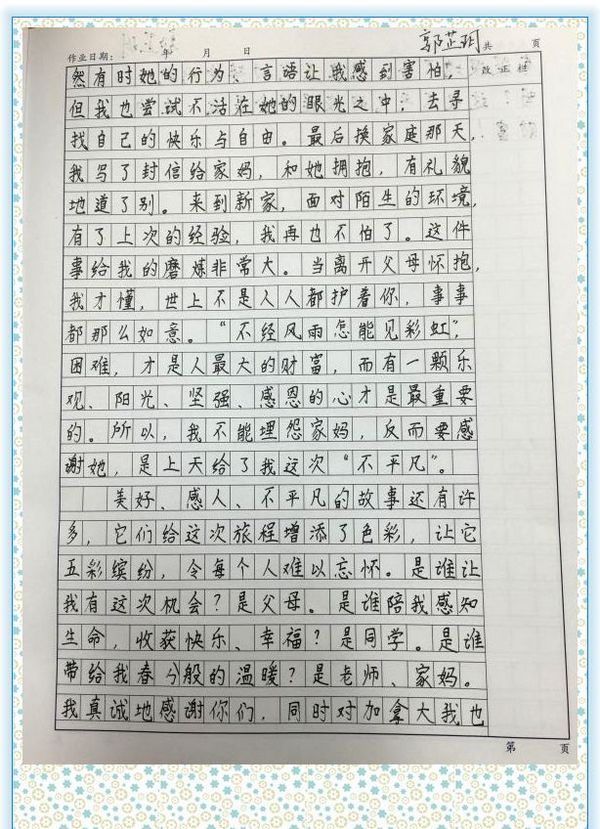 郭芷玥
作业日期： 年 月 日 共 页
然有时她的行为、言语让我感到害怕， 改正栏
但我也尝试不活在她的眼光之中；去寻
找自己的快乐与自由。最后换家庭那天，
我写了封信给家妈，和她拥抱，有礼貌
地道了别。来到新家，面对陌生的环境，
有了上次的经验，我再也不怕了。这件
事给我的磨炼非常大。当离开父母怀抱，
我才懂，世上不是人人都护着你，事事
都那么如意。“不经风雨怎能见彩虹”，
困难，才是人最大的财富，而有一颗乐
观、阳光、坚强、感恩的心才是最重要
的。所以，我不能埋怨家妈，反而要感
谢她，是上天给了我这次“不平凡”。
美好、感人、不平凡的故事还有许
多，它们给这次旅程增添了色彩，让它
五彩缤纷，令每个人难以忘怀。是谁让
我有这次机会？是父母。是谁陪我感知
生命，收获快乐、幸福？是同学。是谁
带给我春兮般的温暖？是老师、家妈。
我真诚地感谢你们，同时对加拿大我也
第 页